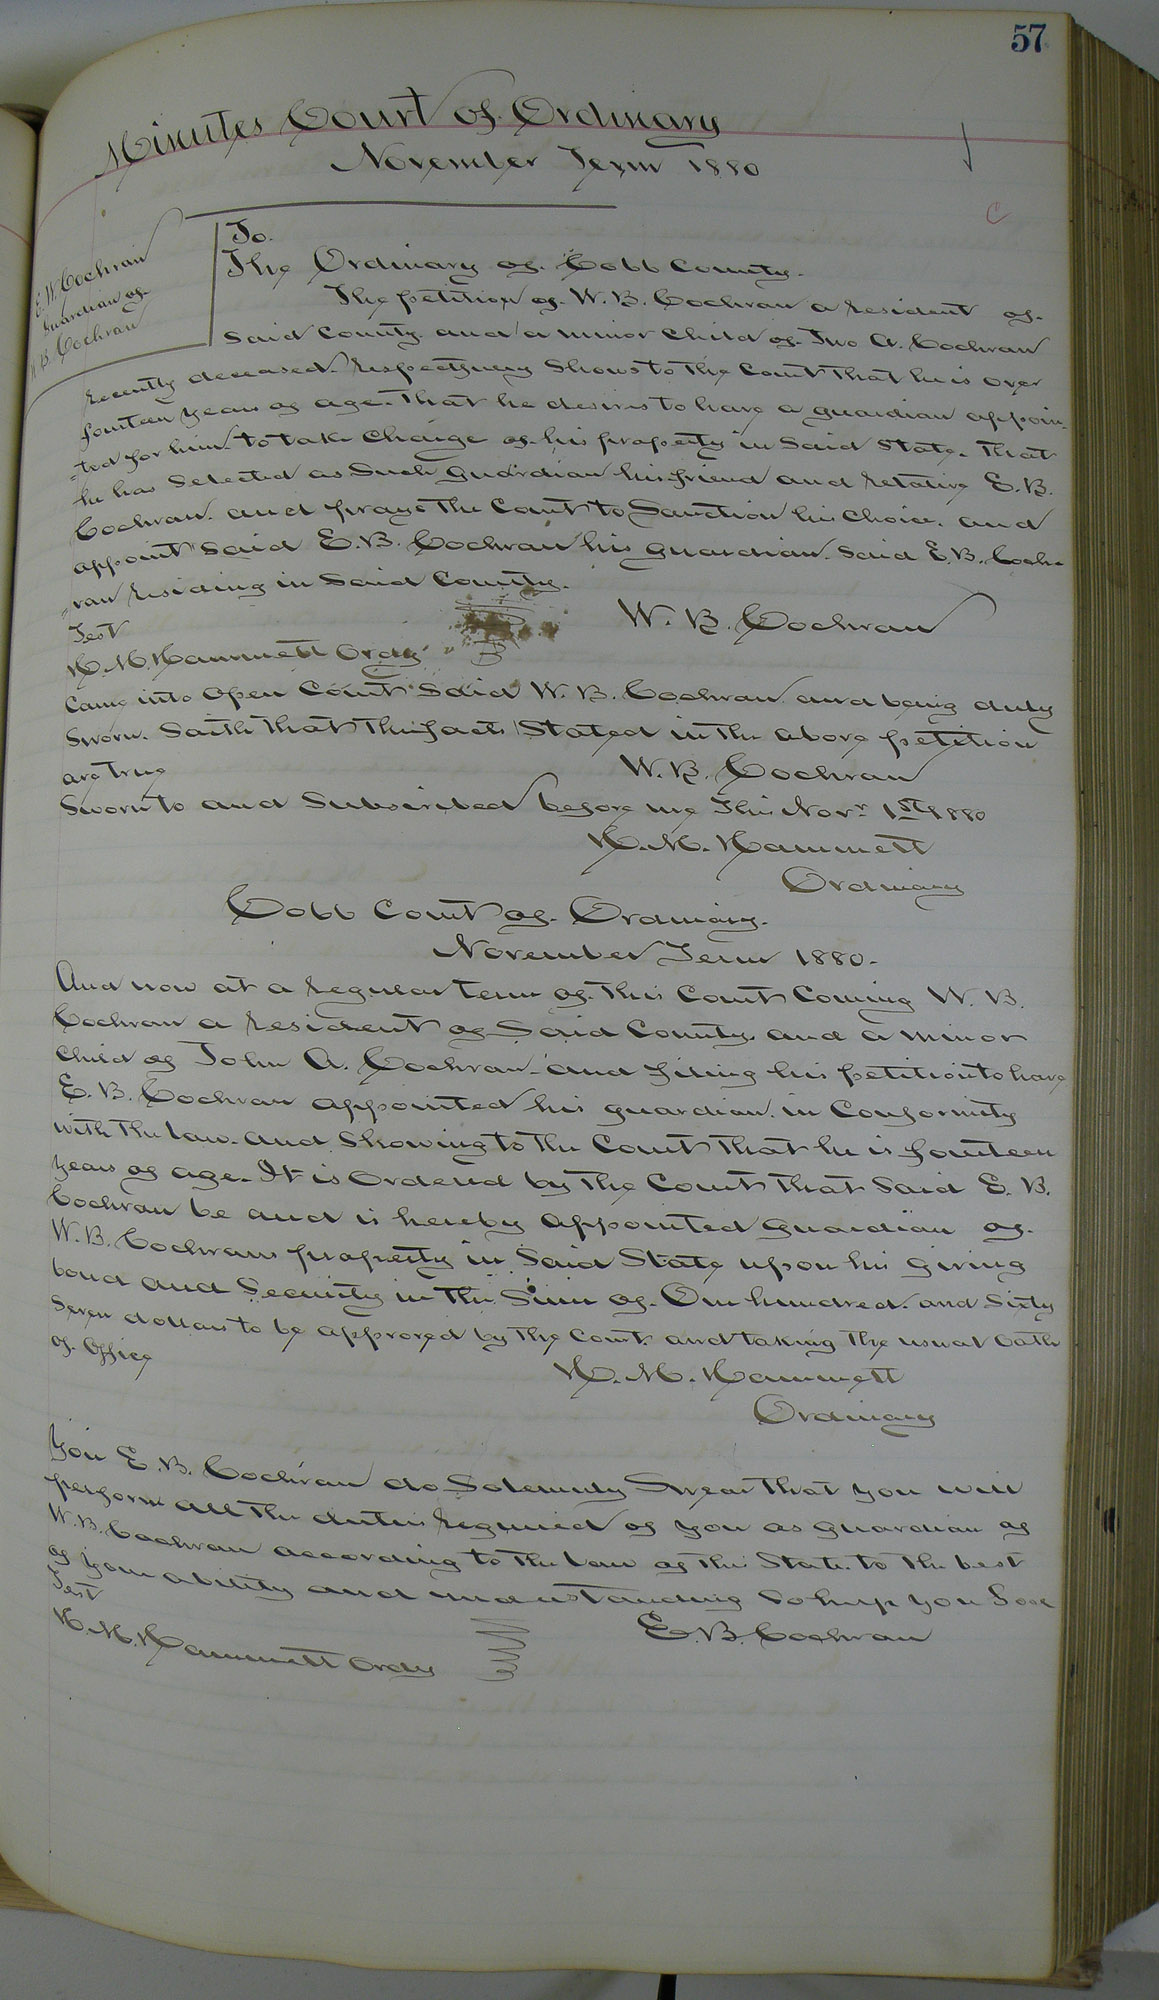 57
Minutes Court of Ordinary
November Term 1880
E. W. Cochran
Guardian of
W. B. Cochran
To.
The Ordinary of Cobb County.
The petition of W. B. Cochran a resident of
Said County and a minor child of Jno A. Cochran
recently deceased. respectfully Shows to the Court that he is over
fourteen years of age. That he desires to have a guardian appoin
=ted for him to take charge of his property in Said State. That
he has Selected as Such guardian his friend and relative E. B.
Cochran. and prays the Court to Sanction his choice. and
appoint Said E. B. Cochran his guardian. Said E. B. Coch=
=ran residing in Said County.
Test
H. M. Hammett Ordy
W. B. Cochran
Came into Open Court Said W. B. Cochran and being duly
Sworn. Saith that the facts Stated in the above petition
are true
W. B. Cochran
Sworn to and Subscribed before me This Novr 1st 1880
H. M. Hammett
Ordinary
Cobb Court of Ordinary.
November Term 1880.
And now at a regular term of this Court Coming W. B.
Cochran a resident of Said County. and a minor
child of John A. Cochran and filing his petition to have
E. B. Cochran appointed his guardian. in Conformity
with the law. and Showing to the Court that he is fourteen
years of age. It is Ordered by the Court that Said E. B.
Cochran be and is hereby appointed guardian of
W. B. Cochrans property in Said State upon his giving
bond and Security in the Sum of One hundred and Sixty
Seven dollars to be approved by the Court. and taking the usual Oath
of Office
H. M. Hammett
Ordinary
You E. B. Cochran do Solemnly Swear that you will
perform all the duties required of you as guardian of
W. B. Cochran according to the law of this State. to the best
of your ability and understanding So help you God
Test
H. M. Hammett Ordy
E. B. Cochran